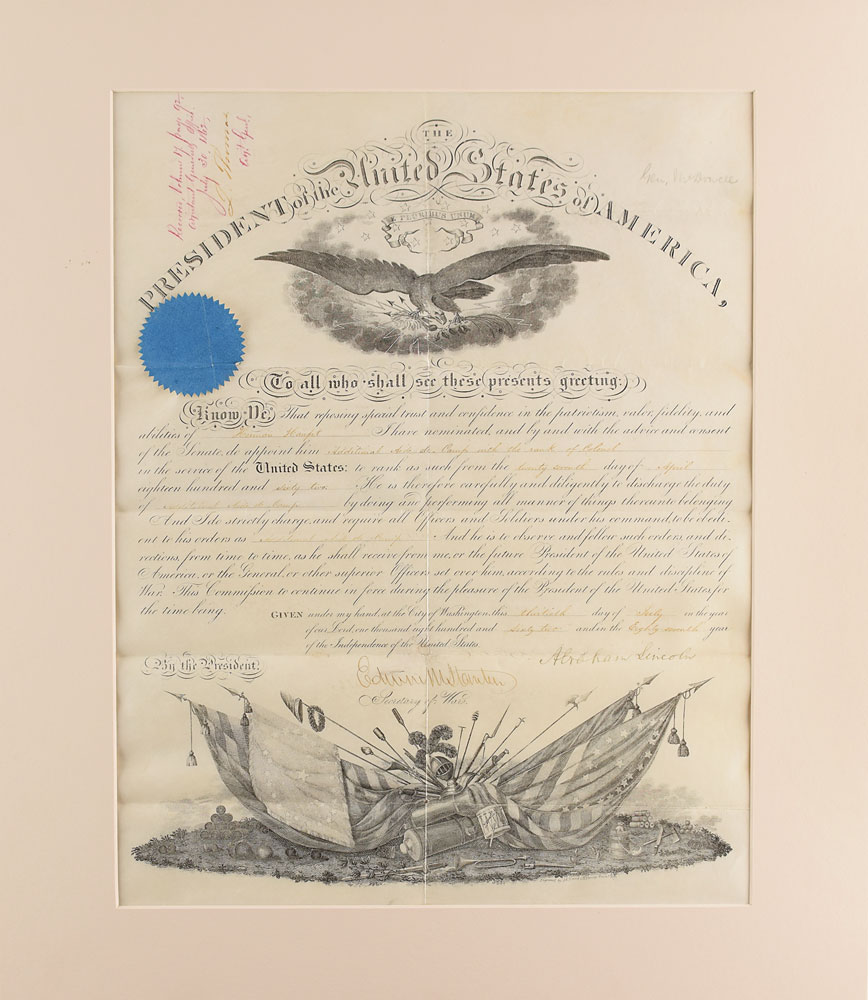 THE
PRESIDENT of the United States of AMERICA,
E PLURIBUS UNUM
Adjutant General's Office
July 30, 1862,
L. Thomas
Gen. McDowell
To all who shall see these presents greeting:
Know Ye, That reposing special trust and confidence in the patriotism, valor, fidelity, and
abilities of Herman Haupt I have nominated, and by and with the advice and consent
of the Senate, do appoint him Additional Aide-de-Camp with the rank of Colonel
in the service of the United States: to rank as such from the twenty seventh day of April
eighteen hundred and sixty two He is therefore carefully and diligently to discharge the duty
of Additional Aide-de-Camp by doing and performing all manner of things thereunto belonging
And I do strictly charge, and require all Officers and Soldiers under his command, to be obedi-
ent to his orders as Additional Aide-de-Camp And he is to observe and follow such orders, and di-
rections, from time to time, as he shall receive from me, or the future President of the United States of
America, or the General, or other superior Officers set over him, according to the rules and discipline of
War. This Commission to continue in force during the pleasure of the President of the United States, for
the time being.
GIVEN under my hand, at the City of Washington, this thirtieth day of July in the year
of our Lord, one thousand eight hundred and sixty two and in the Eighty seventh year
of the Independence of the United States.
Abraham Lincoln
By the President.
Edwin M Stanton
Secretary of War.